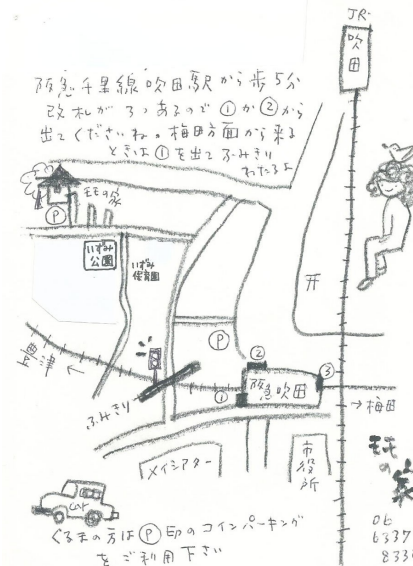 JR
吹田
阪急千里線吹田駅から歩5分
改札が3つあるので①か②から
出てくださいね。梅田方面から来る
ときは①を出てふみきり
わたるよ
モモの家
P
いずみ
公園
いずみ
保育園
P
②
③
阪急吹田
①
→梅田
ふみきり
メイシアター
市役所
モモの家
car
くるまの方はⓅ印のコインパーキング
をご利用下さい
06
6337